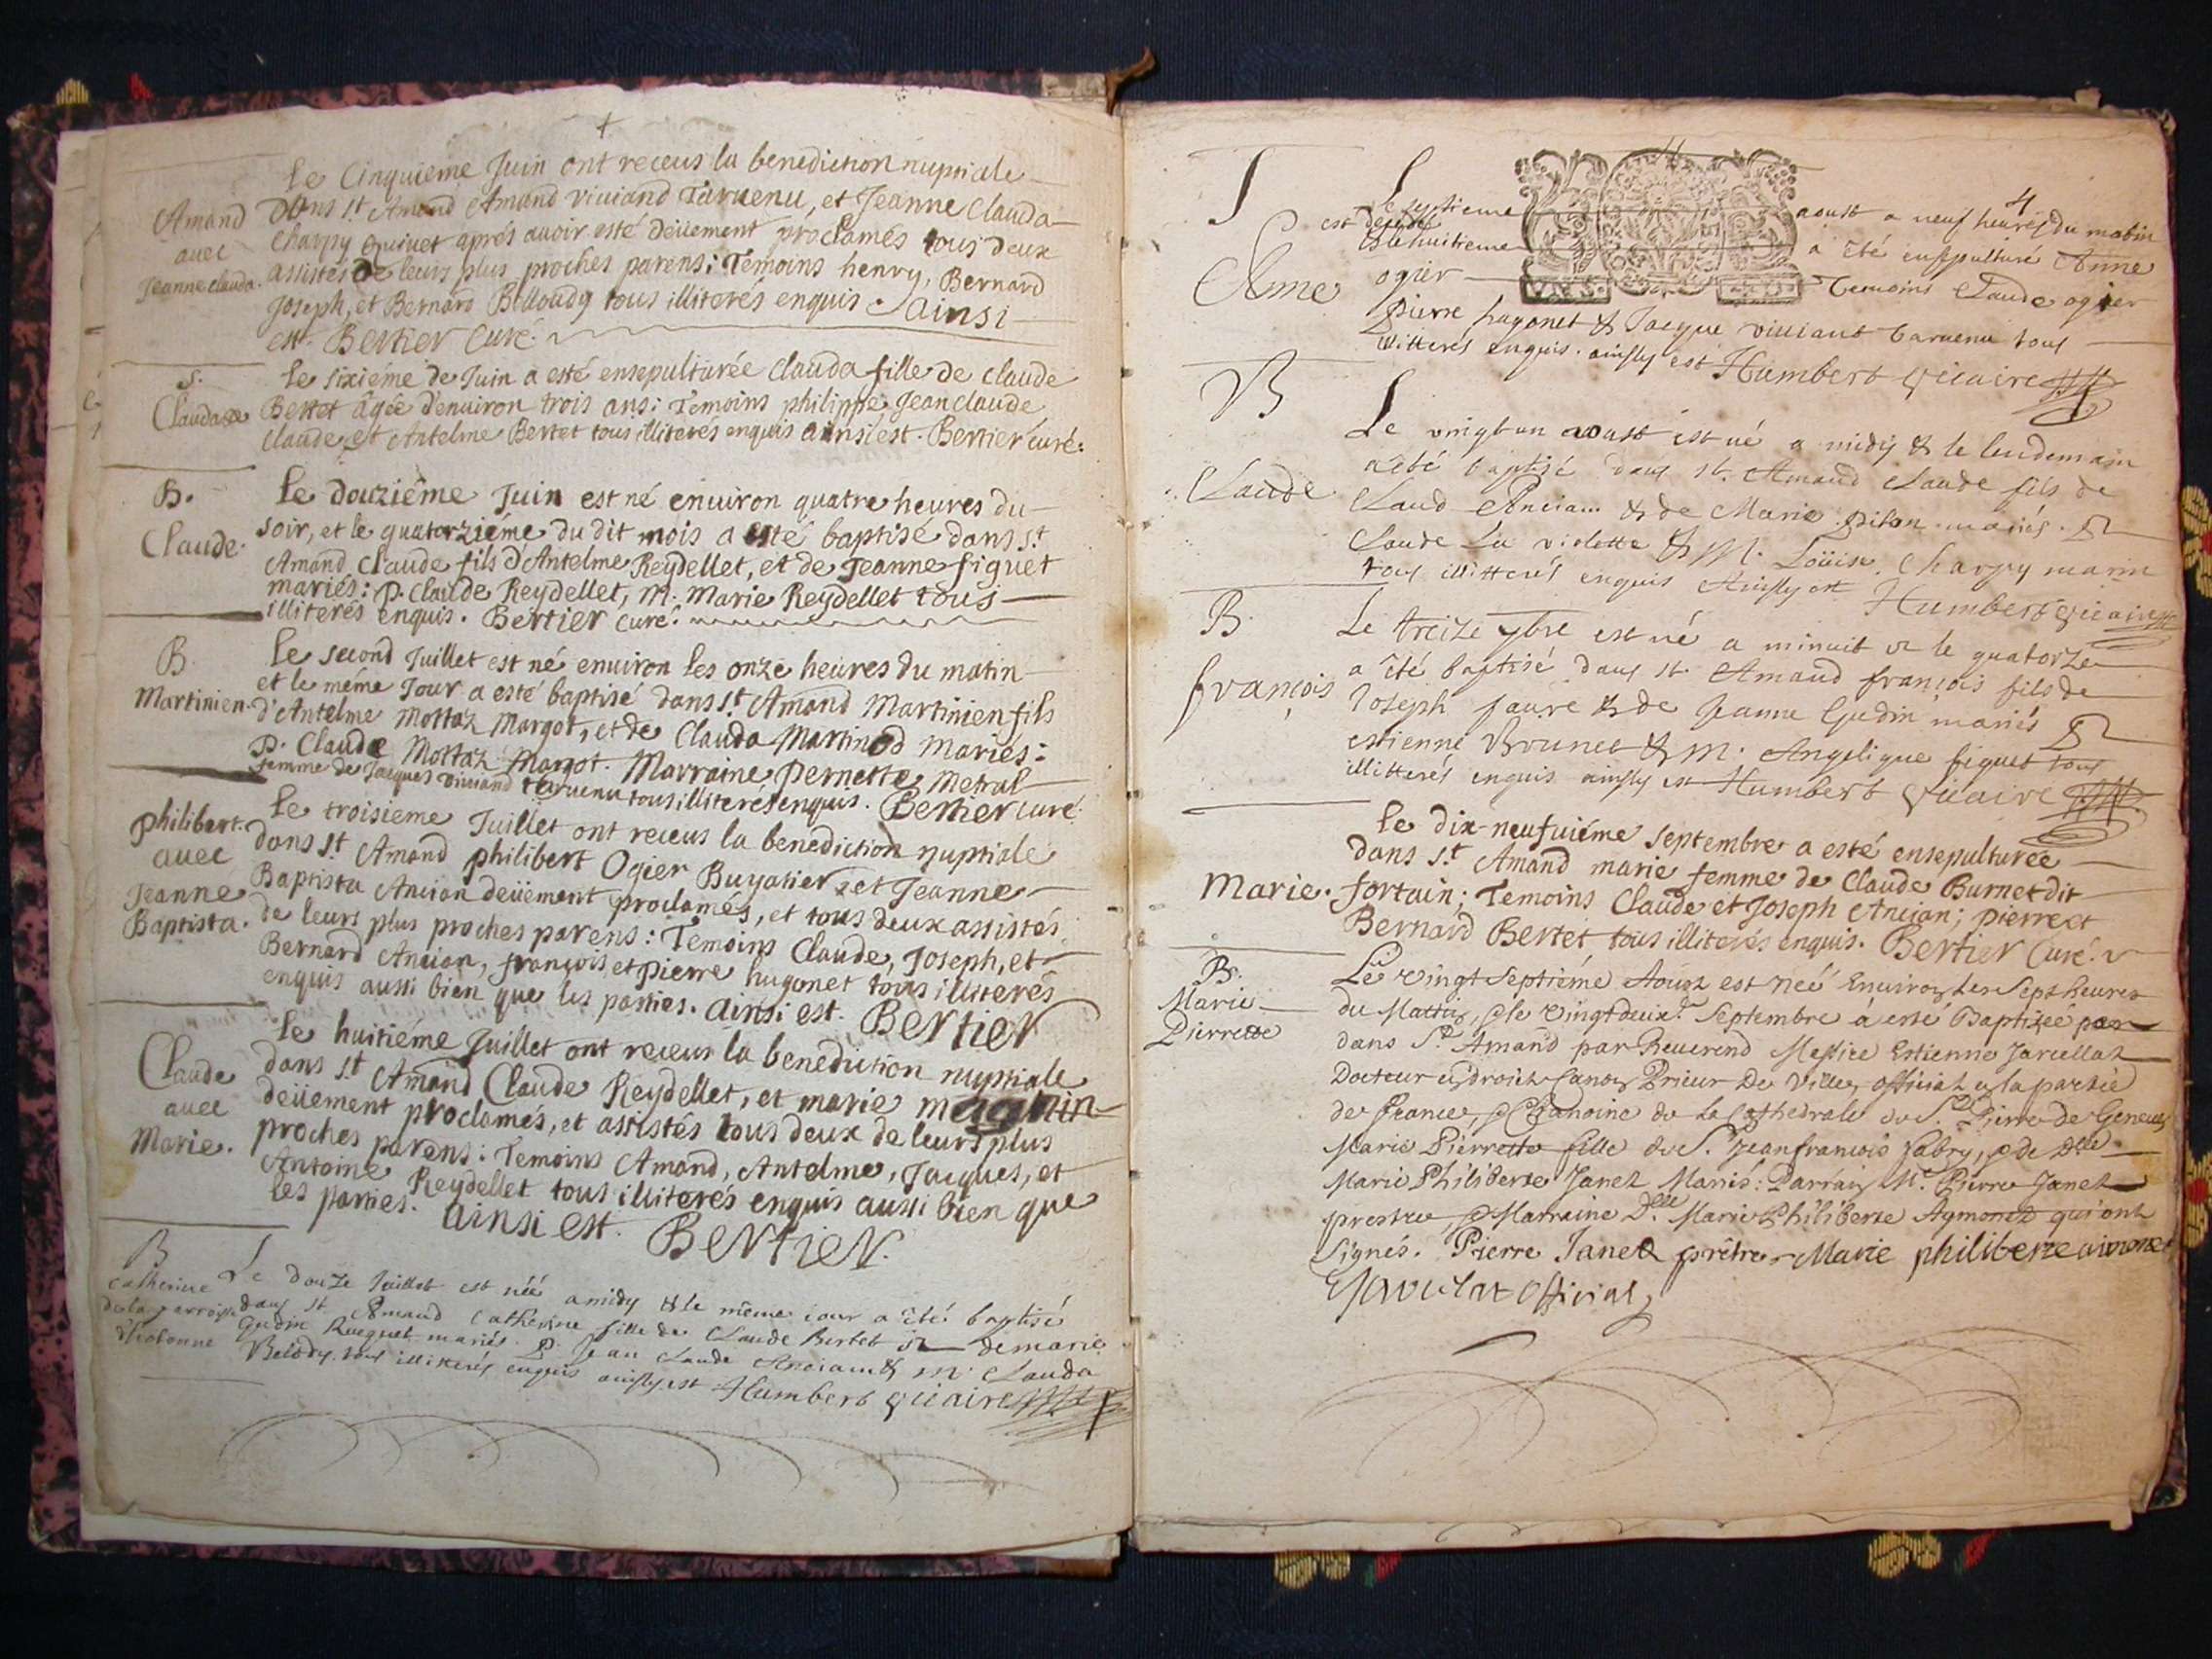 Le Cinquieme Juin ont receus la benediction nuptiale
Amand
avec
Jeanne clauda.
Dans St Amand Amand viviand Taruenu, et Jeanne Clauda
Charpy Quinet aprés auoir esté deüement proclamés tous deux
assistés de leurs plus proches parens: Temoins henry, Bernard
Joseph, et Bernard Billoudy tous illiterés enquis. Ainsi
est. Bertier Curé.
S.
Clauda
le sixiéme de Juin a esté ensepulturée Clauda fille de Claude
Bertet âgée d'enuiron trois ans: Temoins philippe, Jean claude
Claude, et Antelme Bertet tous illiterés enquis ainsi est. Bertier curé.
B.
Claude.
Le douziéme Juin est né enuiron quatre heures du
soir, et le quatorziéme du dit mois a esté baptisé dans St
Amand Claude fils d'Antelme Reydellet, et de Jeanne figuet
mariés: P. Claude Reydellet, M. Marie Reydellet tous
illiterés enquis. Bertier curé.
B.
Martinien.
Le second Juillet est né enuiron les onze heures du matin
et le méme Jour a esté baptisé dans St Amand Martinien fils
d'Antelme Mottaz Margot, et de Clauda Martinod mariés:
P. Claude Mottaz Margot. Marraine Pernette Metral
femme de Jacques viuiand taruenu tous illiterés enquis. Bertier curé.
Philibert.
avec
Jeanne
Baptista.
Le troisieme Juillet ont receus la benediction nuptiale
dans St Amand philibert Ogier Bugatier et Jeanne
Baptista Ancian deüement proclamés, et tous deux assistés
de leurs plus proches parens: Temoins Claude, Joseph, et
Bernard Ancian, françois et pierre hugonet tous illiterés
enquis aussi bien que les parties. Ainsi est. Bertier
Claude
avec
Marie.
le huitiéme Juillet ont receus la benediction nuptiale
dans St Amand Claude Reydellet, et marie magnin
deüement proclamés, et assistés tous deux de leurs plus
proches parens: Temoins Amand, Antelme, Jacques, et
Antoine Reydellet tous illiterés enquis aussi bien que
les parties. Ainsi est. Bertier.
B
Catherine
de la parroisse
Le douze Juillet est néé a midy & le même iour a été baptisé
dans St Amand Catherine fille de Claude Bertet & de marie
Gudin mariés. P. Jean Claude Anciam & m. Clauda
tous illitterés enquis ainsy est Humbert vicaire
4
S
Anne
Le septieme aoust a neuf heures du matin
est decedée
& le huitieme a été ensepulturé Anne
ogier Temoins Claude ogier
pierre hugonet & Jacque viuiant taruenu tous
illitterés enquis. ainsy est Humbert vicaire
B
Claude
Le vingt un aoust est né a midy & le lendemain
a été baptisé dans St. Amand Claude fils de
Claud Anciam & de Marie pilon mariés. P
Claude La violette & M. Loüise Charpy
tous illitterés enquis Ainsy est Humbert vicaire
B
françois
Le treize 7bre est né a minuit & le quatorze
a été baptisé dans St. Amand françois fils de
Joseph faure & de Jeanne Gudin mariés P
estienne Brunet & M. Angelique figuet tous
illitterés enquis ainsy est Humbert vicaire
Marie.
Le dix-neufuiéme septembre a esté ensepulturée
dans St Amand marie femme de Claude Burnet dit
fortain; Temoins Claude et Joseph Ancian; pierre et
Bernard Bertet tous illiterés enquis. Bertier Curé.
B.
Marie
Pierrette
Le vingt Septiéme Aoust est néé Enuiron les Sept heures
du Mattin, & le vingt deuxe Septembre a esté Baptisée
dans St Amand par Reuerend Messire Estienne Jarcellat
Docteur en droict Canon Prieur De Ville, official en la partie
de France, & Chanoine de La Cathedrale de St Pierre de Geneue
Marie Pierrette fille de Sr Jeanfrancois Fabry, & de Dlle
Marie Philiberte Janet Mariés: Parrain Mr. Pierre Janet
prestre, & Marraine Dlle Marie Philiberte Aymonet qui ont
signés. Pierre Janet prêtre Marie philiberte aimonet
Official